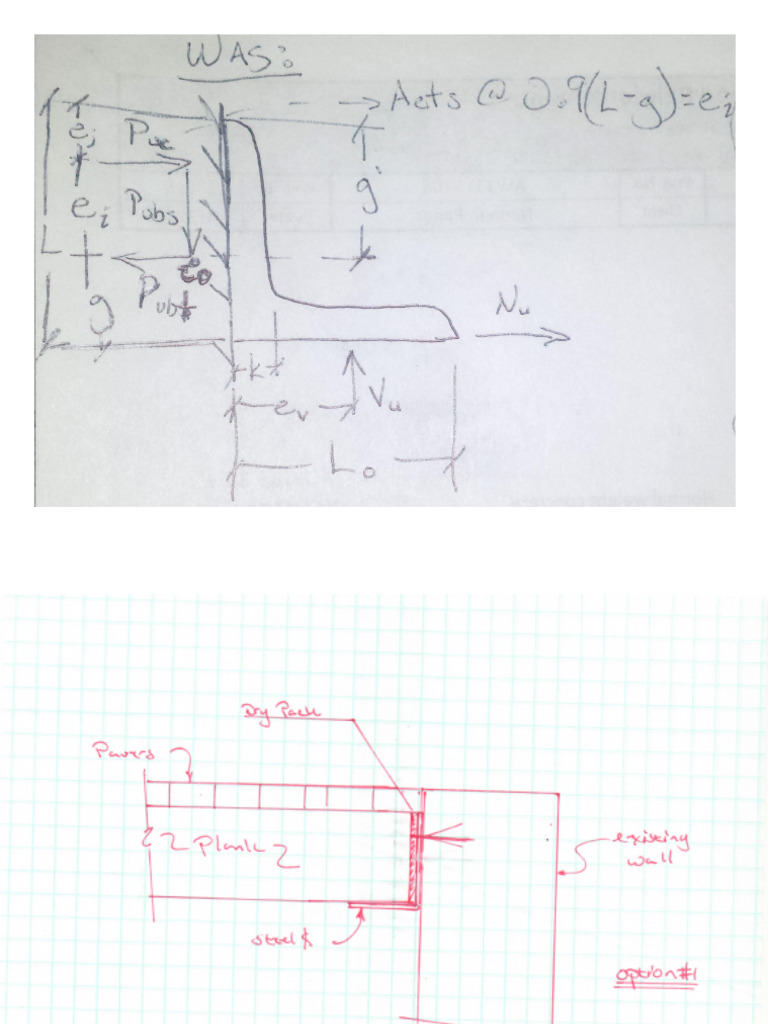 WAS:
Acts @ 0.9(L-g)=ei
ei
Puc
g
ei
Pubs
L
Pubt
g
Nu
k
ev
Vu
Lo
Dry Pack
Pavers
Plank
existing
wall
steel
option #1